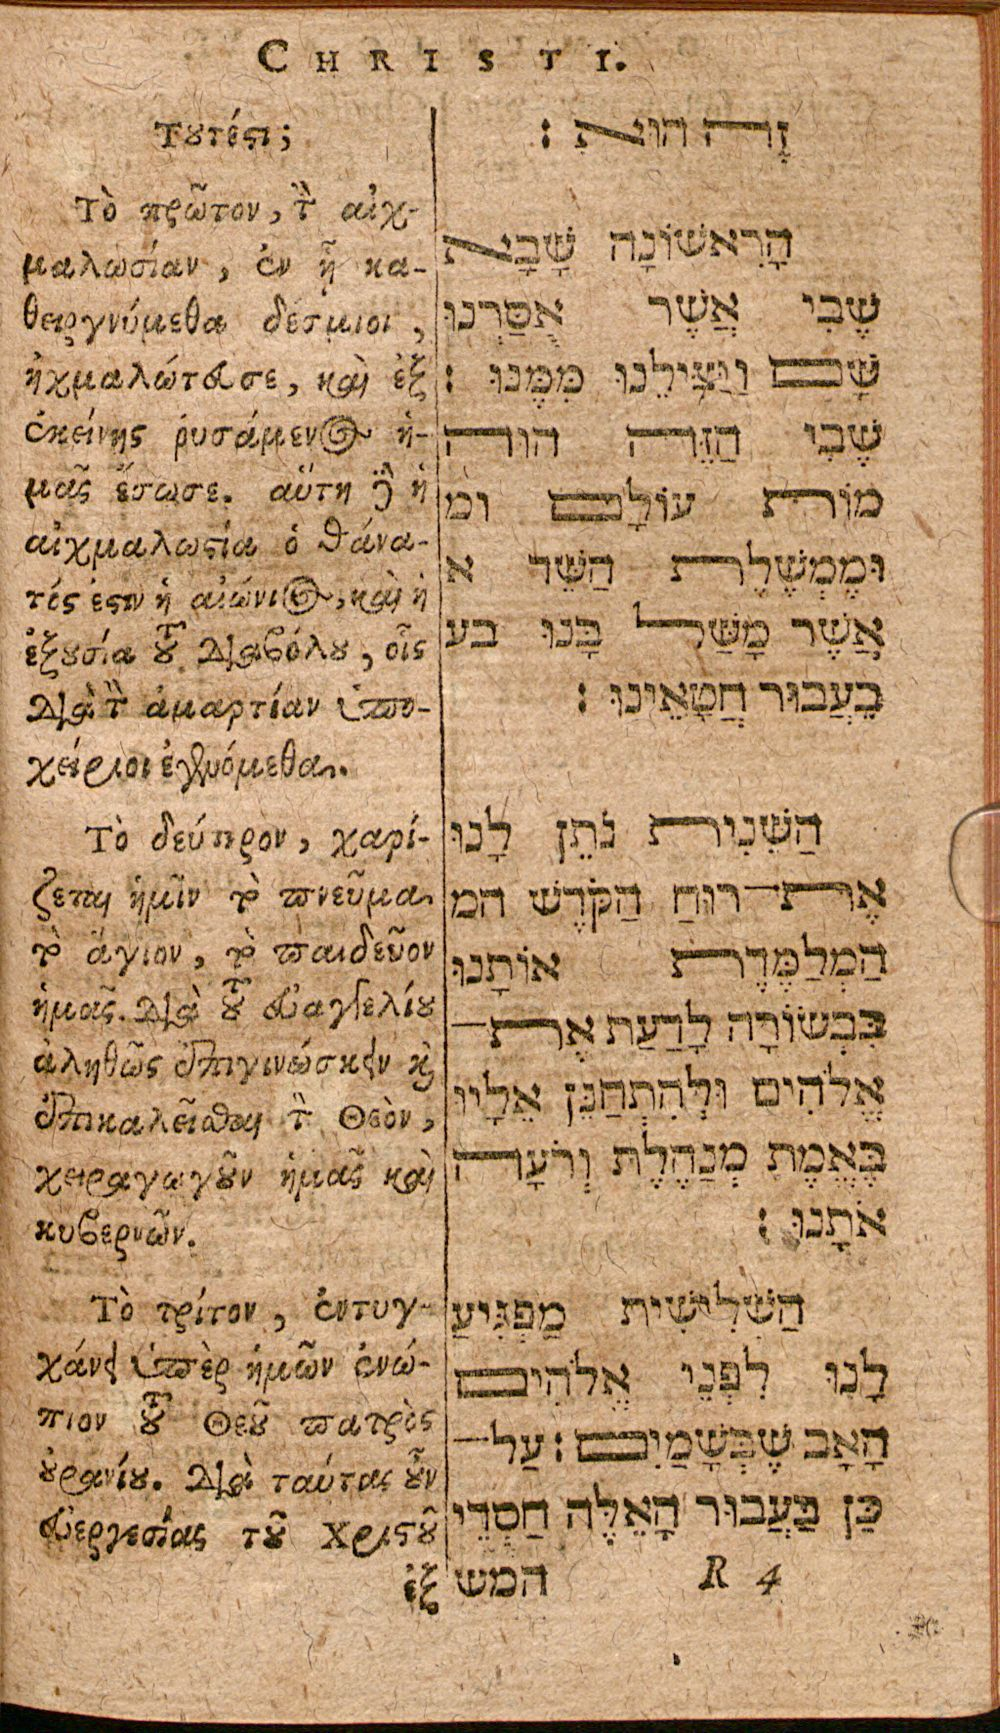 CHRISTI.
Τουτέστι;
Τὸ πρῶτον, τὴν αἰχ-
μαλωσίαν, ἐν ᾗ κα-
θειργνύμεθα δέσμιοι,
ᾐχμαλώτευσε, καὶ ἐξ
ἐκείνης ῥυσάμενος ἡ-
μᾶς ἔσωσε. αὕτη δὲ ἡ
αἰχμαλωσία ὁ θάνα-
τός ἐστιν ἡ αἰώνιος, καὶ ἡ
ἐξουσία τοῦ Διαβόλου, οἷς
Διὰ τὴν ἁμαρτίαν ὑπο-
χείριοι ἐγενόμεθα.
Τὸ δεύτερον, χαρί-
ζεται ἡμῖν τὸ πνεῦμα
τὸ ἅγιον, τὸ παιδεῦον
ἡμᾶς Διὰ τοῦ Εὐαγγελίου
ἀληθῶς ἐπιγινώσκειν καὶ
ἐπικαλεῖσθαι τὸν Θεὸν,
χειραγωγοῦν ἡμᾶς καὶ
κυβερνῶν.
Τὸ τρίτον, ἐντυγ-
χάνει ὑπὲρ ἡμῶν ἐνώ-
πιον τοῦ Θεοῦ πατρὸς
οὐρανίου. Διὰ ταύτας οὖν
Εὐεργεσίας τοῦ Χριστοῦ
ἐξ
זֶה הוּא :
הָרִאשׁוֹנָה שָׁבָא
שֶׁבִי אֲשֶׁר אֲסַרְנוּ
שָׁם וַיַּצִּילֵנוּ מִמֶּנוּ :
שֶׁבִי הַזֶּה הוה
מוֹת עוֹלָם ומ
וּמֶמְשֶׁלֶת הַשֵּׁד א
אֲשֶׁר מָשַׁל בָּנוּ בע
בַּעֲבוּר חֲטָאֵינוּ :
הַשֵּׁנִית נֹתֵן לָנוּ
אֶת־רוּחַ הַקֹּדֶשׁ המ
הַמְלַמֶּדֶת אוֹתָנוּ
בִּבְשׂוֹרָה לָדַעַת אֶת־
אֱלֹהִים וּלְהִתְחַנֵּן אֵלָיו
בֶּאֱמֶת מְנַהֶלֶת וְרֹעָה
אֹתָנוּ :
הַשְּׁלִישִׁית מַפְגִּיעַ
לָנוּ לִפְנֵי אֱלֹהִים
הָאָב שֶׁבְּשָׁמַיִם : עַל־
כֵּן בַּעֲבוּר הָאֵלֶּה חַסְדֵי
המש
R 4